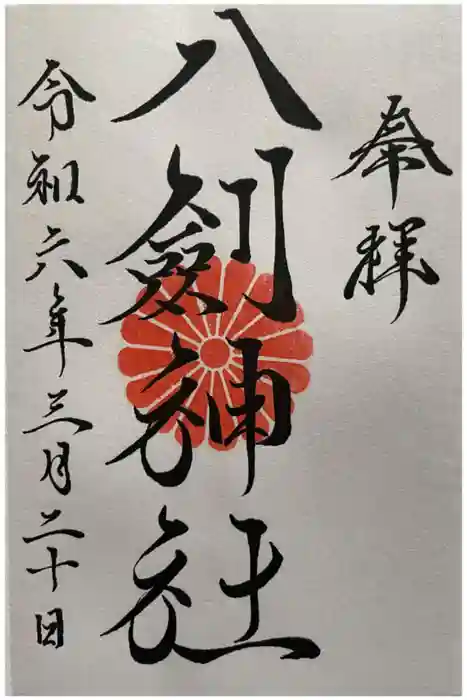 奉拜
八劔神社
令和六年三月二十日